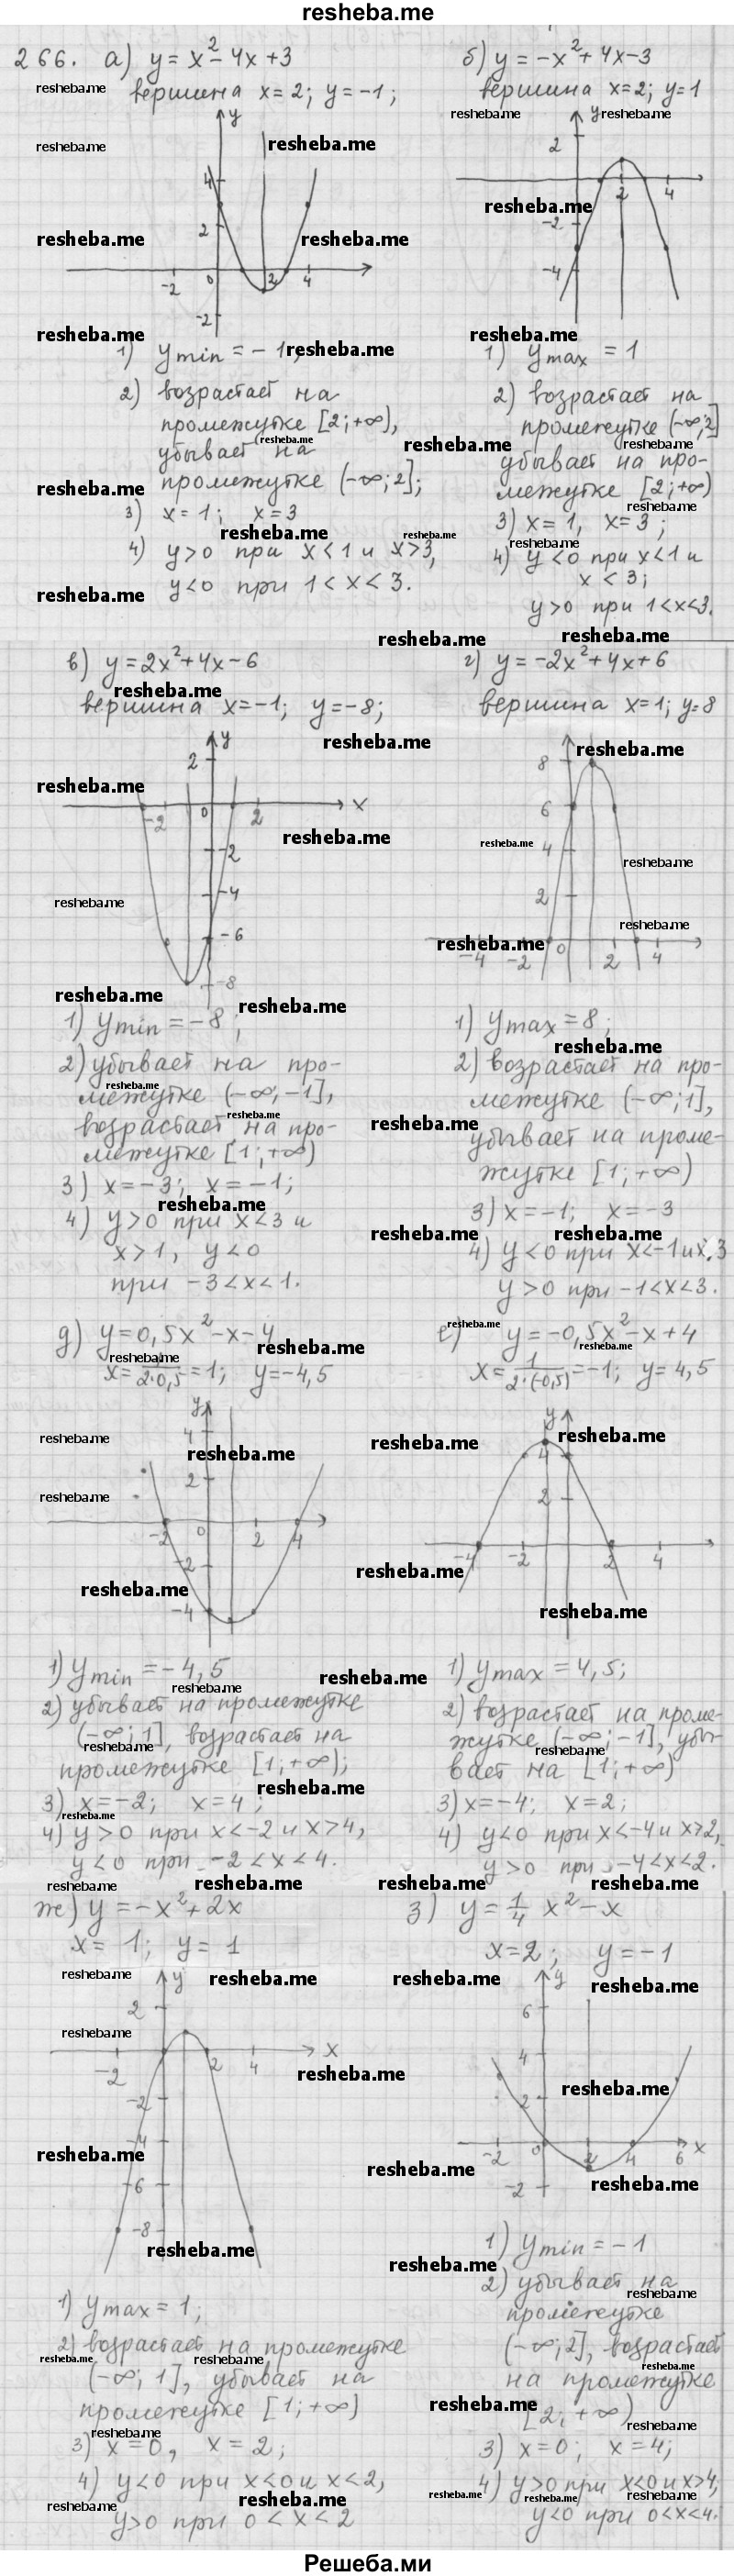 resheba.me
266. а) y = x² - 4x + 3
вершина x = 2; y = -1;
1) y min = -1,
2) возрастает на
промежутке [2; +∞),
убывает на
промежутке (-∞; 2];
3) x = 1; x = 3
4) y > 0 при x < 1 и x > 3,
y < 0 при 1 < x < 3.
б) y = -x² + 4x - 3
вершина x = 2; y = 1
1) y max = 1
2) возрастает на
промежутке (-∞; 2]
убывает на про-
межутке [2; +∞)
3) x = 1, x = 3;
4) y < 0 при x < 1 и
x < 3;
y > 0 при 1 < x < 3.
в) y = 2x² + 4x - 6
вершина x = -1; y = -8;
1) y min = -8;
2) убывает на про-
межутке (-∞; -1],
возрастает на про-
межутке [1; +∞)
3) x = -3; x = -1;
4) y > 0 при x < 3 и
x > 1, y < 0
при -3 < x < 1.
г) y = -2x² + 4x + 6
вершина x = 1; y = 8
1) y max = 8;
2) возрастает на про-
межутке (-∞; 1],
убывает на проме-
жутке [1; +∞)
3) x = -1; x = -3
4) y < 0 при x < -1 и x > 3
y > 0 при -1 < x < 3.
д) y = 0,5x² - x - 4
x = 1/(2·0,5) = 1; y = -4,5
1) y min = -4,5
2) убывает на промежутке
(-∞; 1], возрастает на
промежутке [1; +∞);
3) x = -2; x = 4;
4) y > 0 при x < -2 и x > 4,
y < 0 при -2 < x < 4.
е) y = -0,5x² - x + 4
x = 1/(2·(-0,5)) = -1; y = 4,5
1) y max = 4,5;
2) возрастает на проме-
жутке (-∞; -1], убы-
вает на [1; +∞)
3) x = -4; x = 2;
4) y < 0 при x < -4 и x > 2,
y > 0 при -4 < x < 2.
ж) y = -x² + 2x
x = 1; y = 1
1) y max = 1;
2) возрастает на промежутке
(-∞; 1], убывает на
промежутке [1; +∞)
3) x = 0, x = 2;
4) y < 0 при x < 0 и x < 2,
y > 0 при 0 < x < 2
з) y = 1/4 x² - x
x = 2; y = -1
1) y min = -1
2) убывает на
промежутке
(-∞; 2], возрастает
на промежутке
[2; +∞)
3) x = 0; x = 4;
4) y > 0 при x < 0 и x > 4,
y < 0 при 0 < x < 4.
Решеба.ми